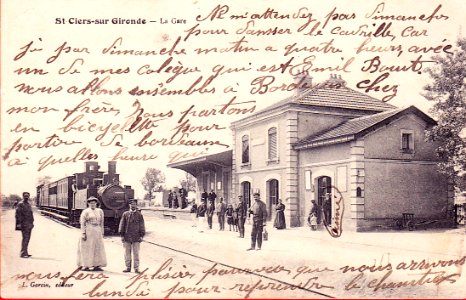 St Ciers-sur Gironde — La Gare
Ne m'attendez pas dimanche
pour danser le cadrille, car
je pars dimanche matin a quatre heures, avec
un de mes colègue qui est Emil Bourt,
nous allons ensembles à Bordeaux chez
mon frère, nous partons
en bicyclette pour
partire de bordeaux
a quelles heure
L. Garcin, éditeur
mes plaisire pourvue que nous arravons
lundi pour reprendre le chantier